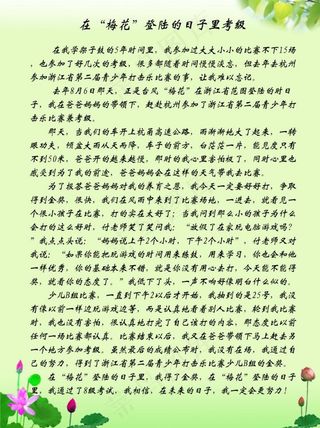 在“梅花”登陆的日子里考级
在我学架子鼓的5年时间里，我参加过大大小小的比赛不下15场
，也参加了好几次的考级，很多都随着时间慢慢淡忘，但去年去杭州
参加浙江省第二届青少年打击乐比赛的事，让我难以忘记。
去年8月6日那天，正是台风“梅花”在浙江省范围登陆的时日
子，我在爸爸妈妈的带领下，赴赴杭州参加了浙江省第二届青少年打
击乐比赛考级。
那天，当我们的车开上杭甬高速公路，雨渐渐地大了起来，一转
眼功夫，倾盆大雨从天而降，车子的前方，白茫茫一片，能见度只有
不到50米，爸爸开的越来越慢，那时的我心里害怕极了，同时心里也
感受到为了我的前途，爸爸妈妈会在这样的天气带我去比赛。
为了报答爸爸妈妈对我的养育之恩，我今天一定要好好打，争取
得到金奖，很快，我们在风雨中来到了比赛场地，一进去，就看见一
个很小孩子在比赛，打的实在太好了；当我问到那么小的孩子为什么
会打的这么好时，付老师笑了笑问我：“放假了在家玩电脑游戏吗？
”我点点头说：“妈妈说上午2个小时，下午2个小时”，付老师又对
我说：“如果你能把玩游戏的时间用来练鼓，用来学习，你也会和他
一样优秀，你的基础本来不错，就是你没有用心去打，今天能不能得
奖，就看你的态度了。”我低下了头，一声不吭好像明白什么似的。
少儿B组比赛，一直到下午2以后才开始，我抽到的是25号，我没
有像以前一样边玩游戏边等，而是认真地看着别人比赛，轮到我比赛
时，我也没有害怕，很认真地打完了自己该打的内容，那态度比以前
任何一场比赛都认真。比赛结束以后，我又在爸爸带领下马上赶去另
一个地方参加考级。虽然最后的成绩公布时，我没有在场，我通过自
己的努力，得到了浙江省第二届青少年打击乐比赛少儿B组的金奖。
在“梅花”登陆的日子里，我得了金奖，在“梅花”登陆的日子
里，我通过了8级考试，我相信，在未来的日子，我一定会更努力！